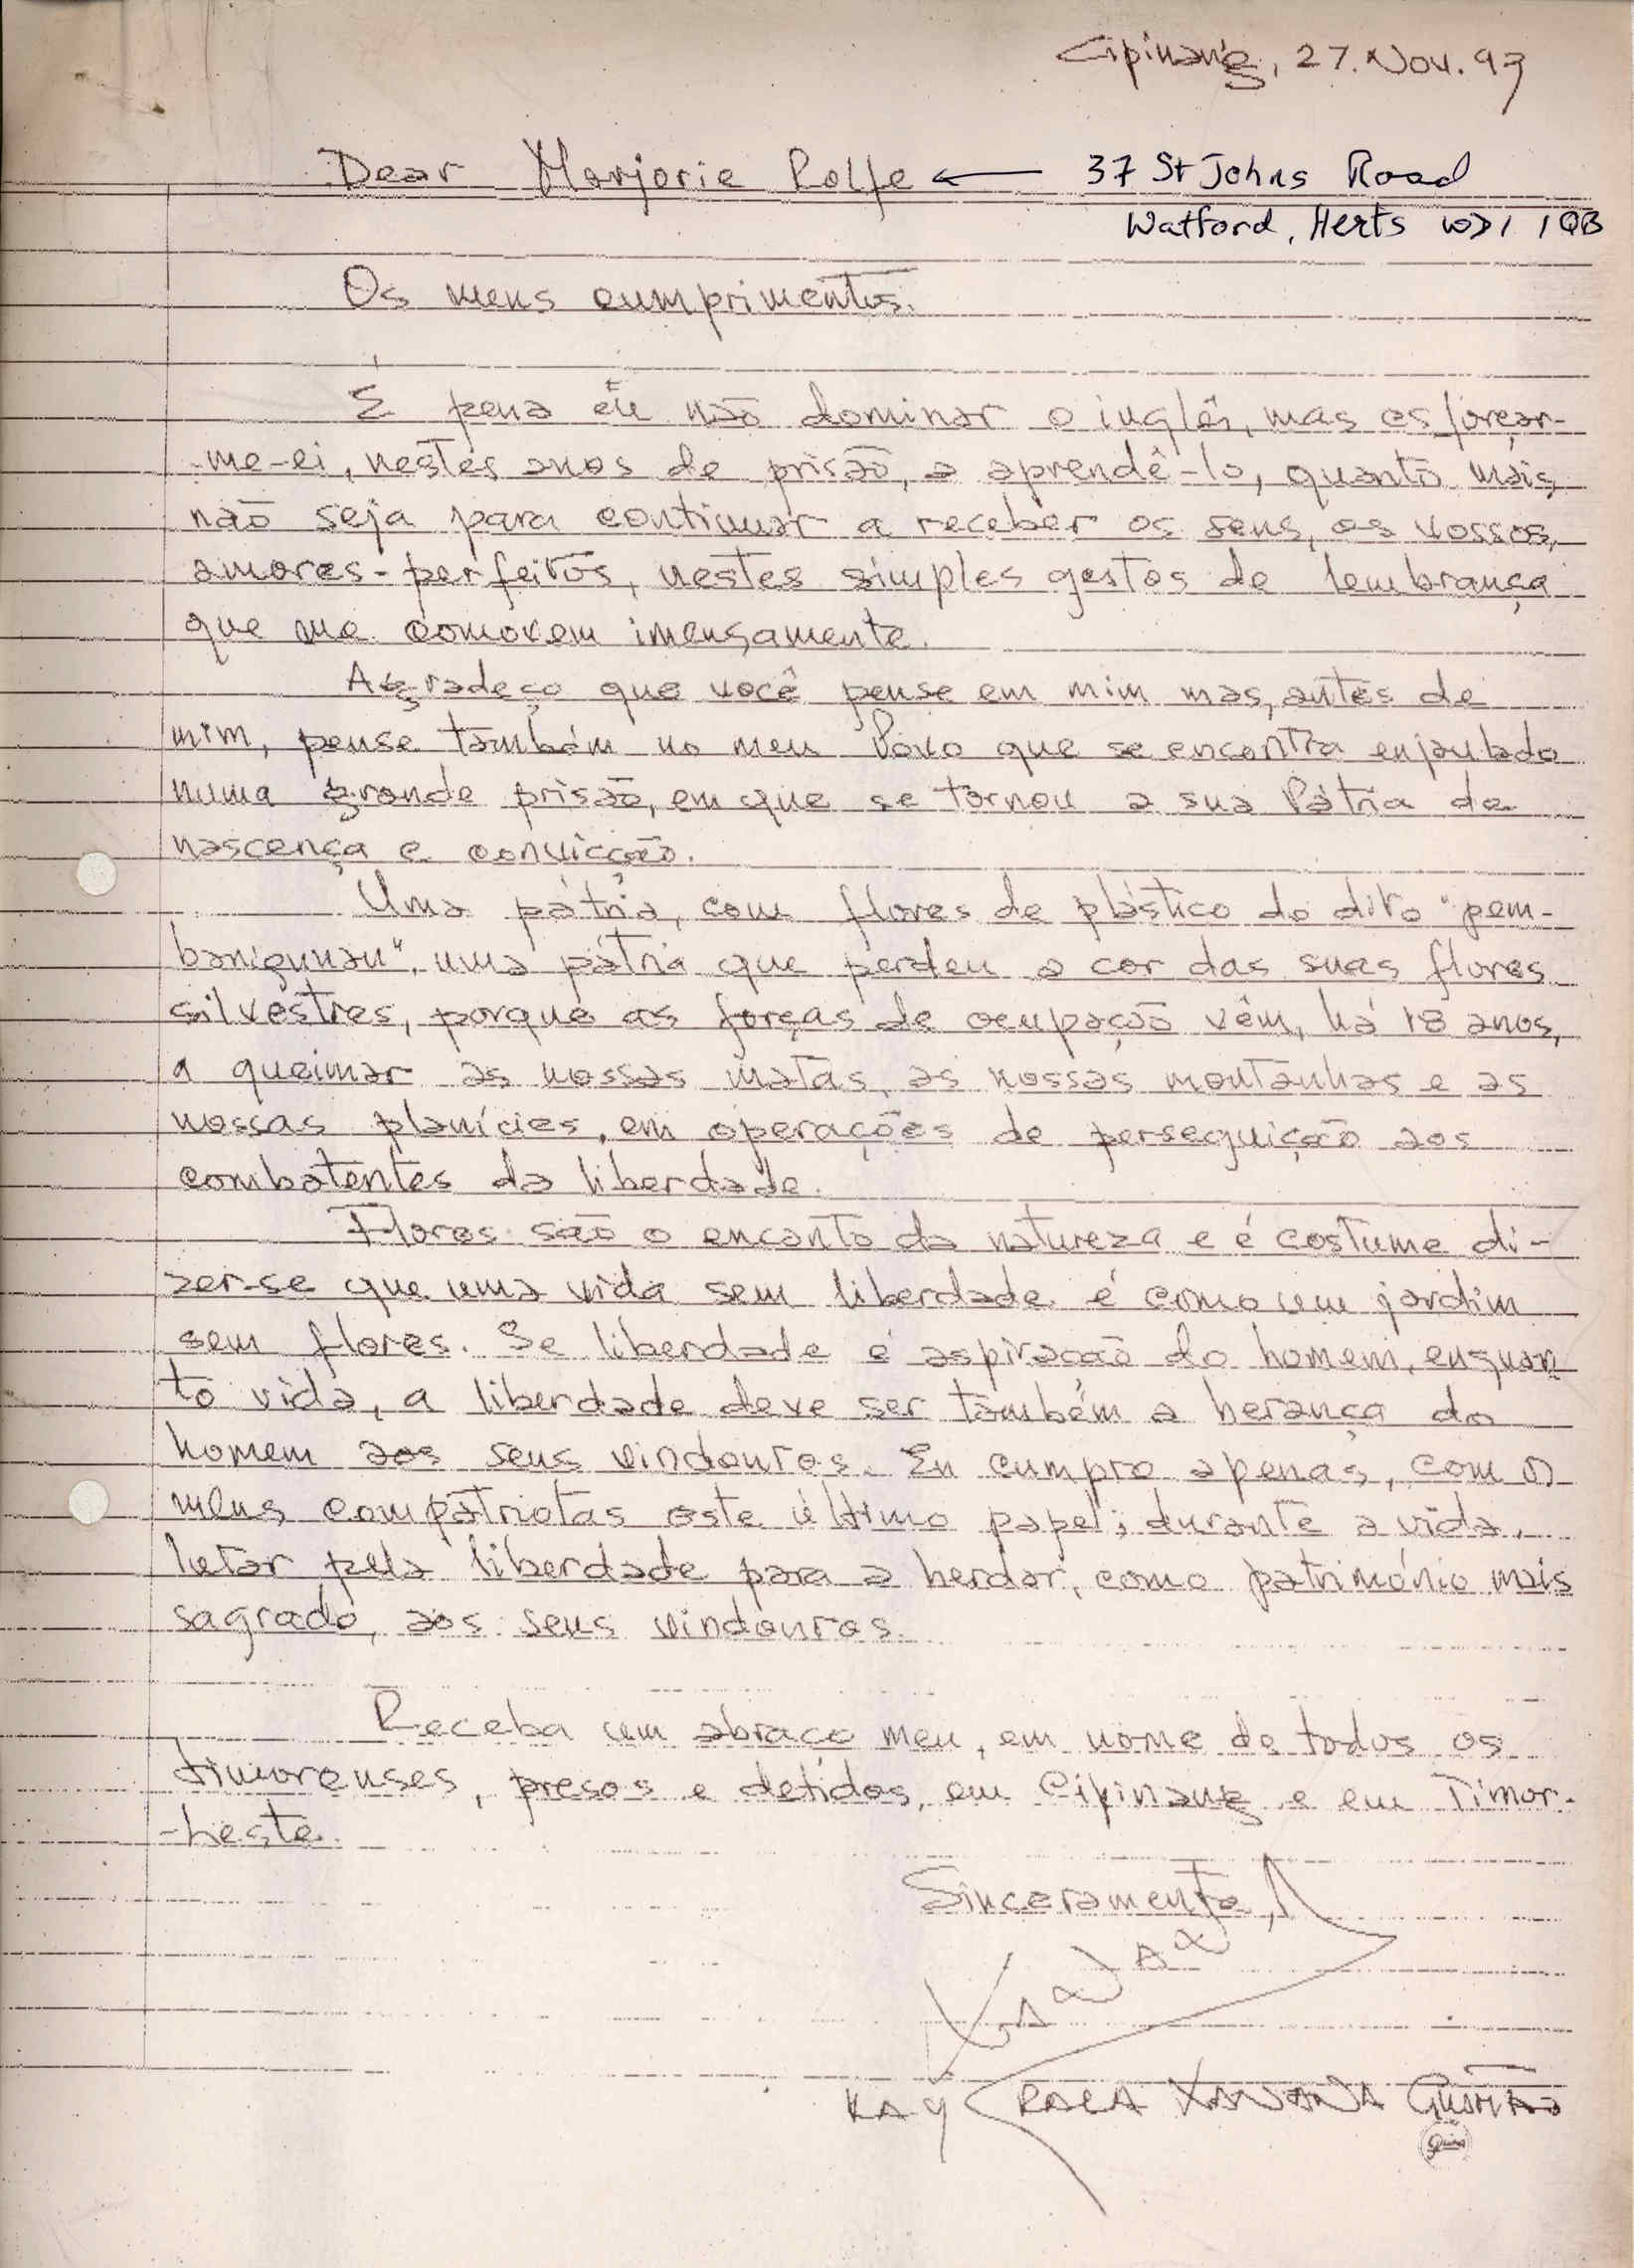 Cipinang, 27. Nov. 93
Dear Marjorie Rolfe ← 37 St Johns Road
Watford, Herts WD1 1QB
Os meus cumprimentos.
É pena eu não dominar o inglês, mas esforçar-
-me-ei, nestes anos de prisão, a aprendê-lo, quanto mais
não seja para continuar a receber os seus, os vossos,
amores-perfeitos, nestes simples gestos de lembrança
que me comovem imensamente.
Agradeço que você pense em mim mas, antes de
mim, pense também no meu Povo que se encontra enjaulado
numa grande prisão, em que se tornou a sua Pátria de
nascença e convicção.
Uma pátria, com flores de plástico do dito "pem-
bangunan", uma pátria que perdeu a cor das suas flores
silvestres, porque as forças de ocupação vêm, há 18 anos,
a queimar as nossas matas, as nossas montanhas e as
nossas planícies, em operações de perseguição aos
combatentes da liberdade.
Flores são o encanto da natureza e é costume di-
zer-se que uma vida sem liberdade é como um jardim
sem flores. Se liberdade é aspiração do homem, enquan
to vida, a liberdade deve ser também a herança do
homem aos seus vindouros. Eu cumpro apenas, com os
meus compatriotas este último papel; durante a vida,
lutar pela liberdade para a herdar, como património mais
sagrado, aos seus vindouros.
Receba um abraço meu, em nome de todos os
timorenses, presos e detidos, em Cipinang e em Timor-
-Leste.
Sinceramente,
Xanana
KAY RALA XANANA GUSMÃO